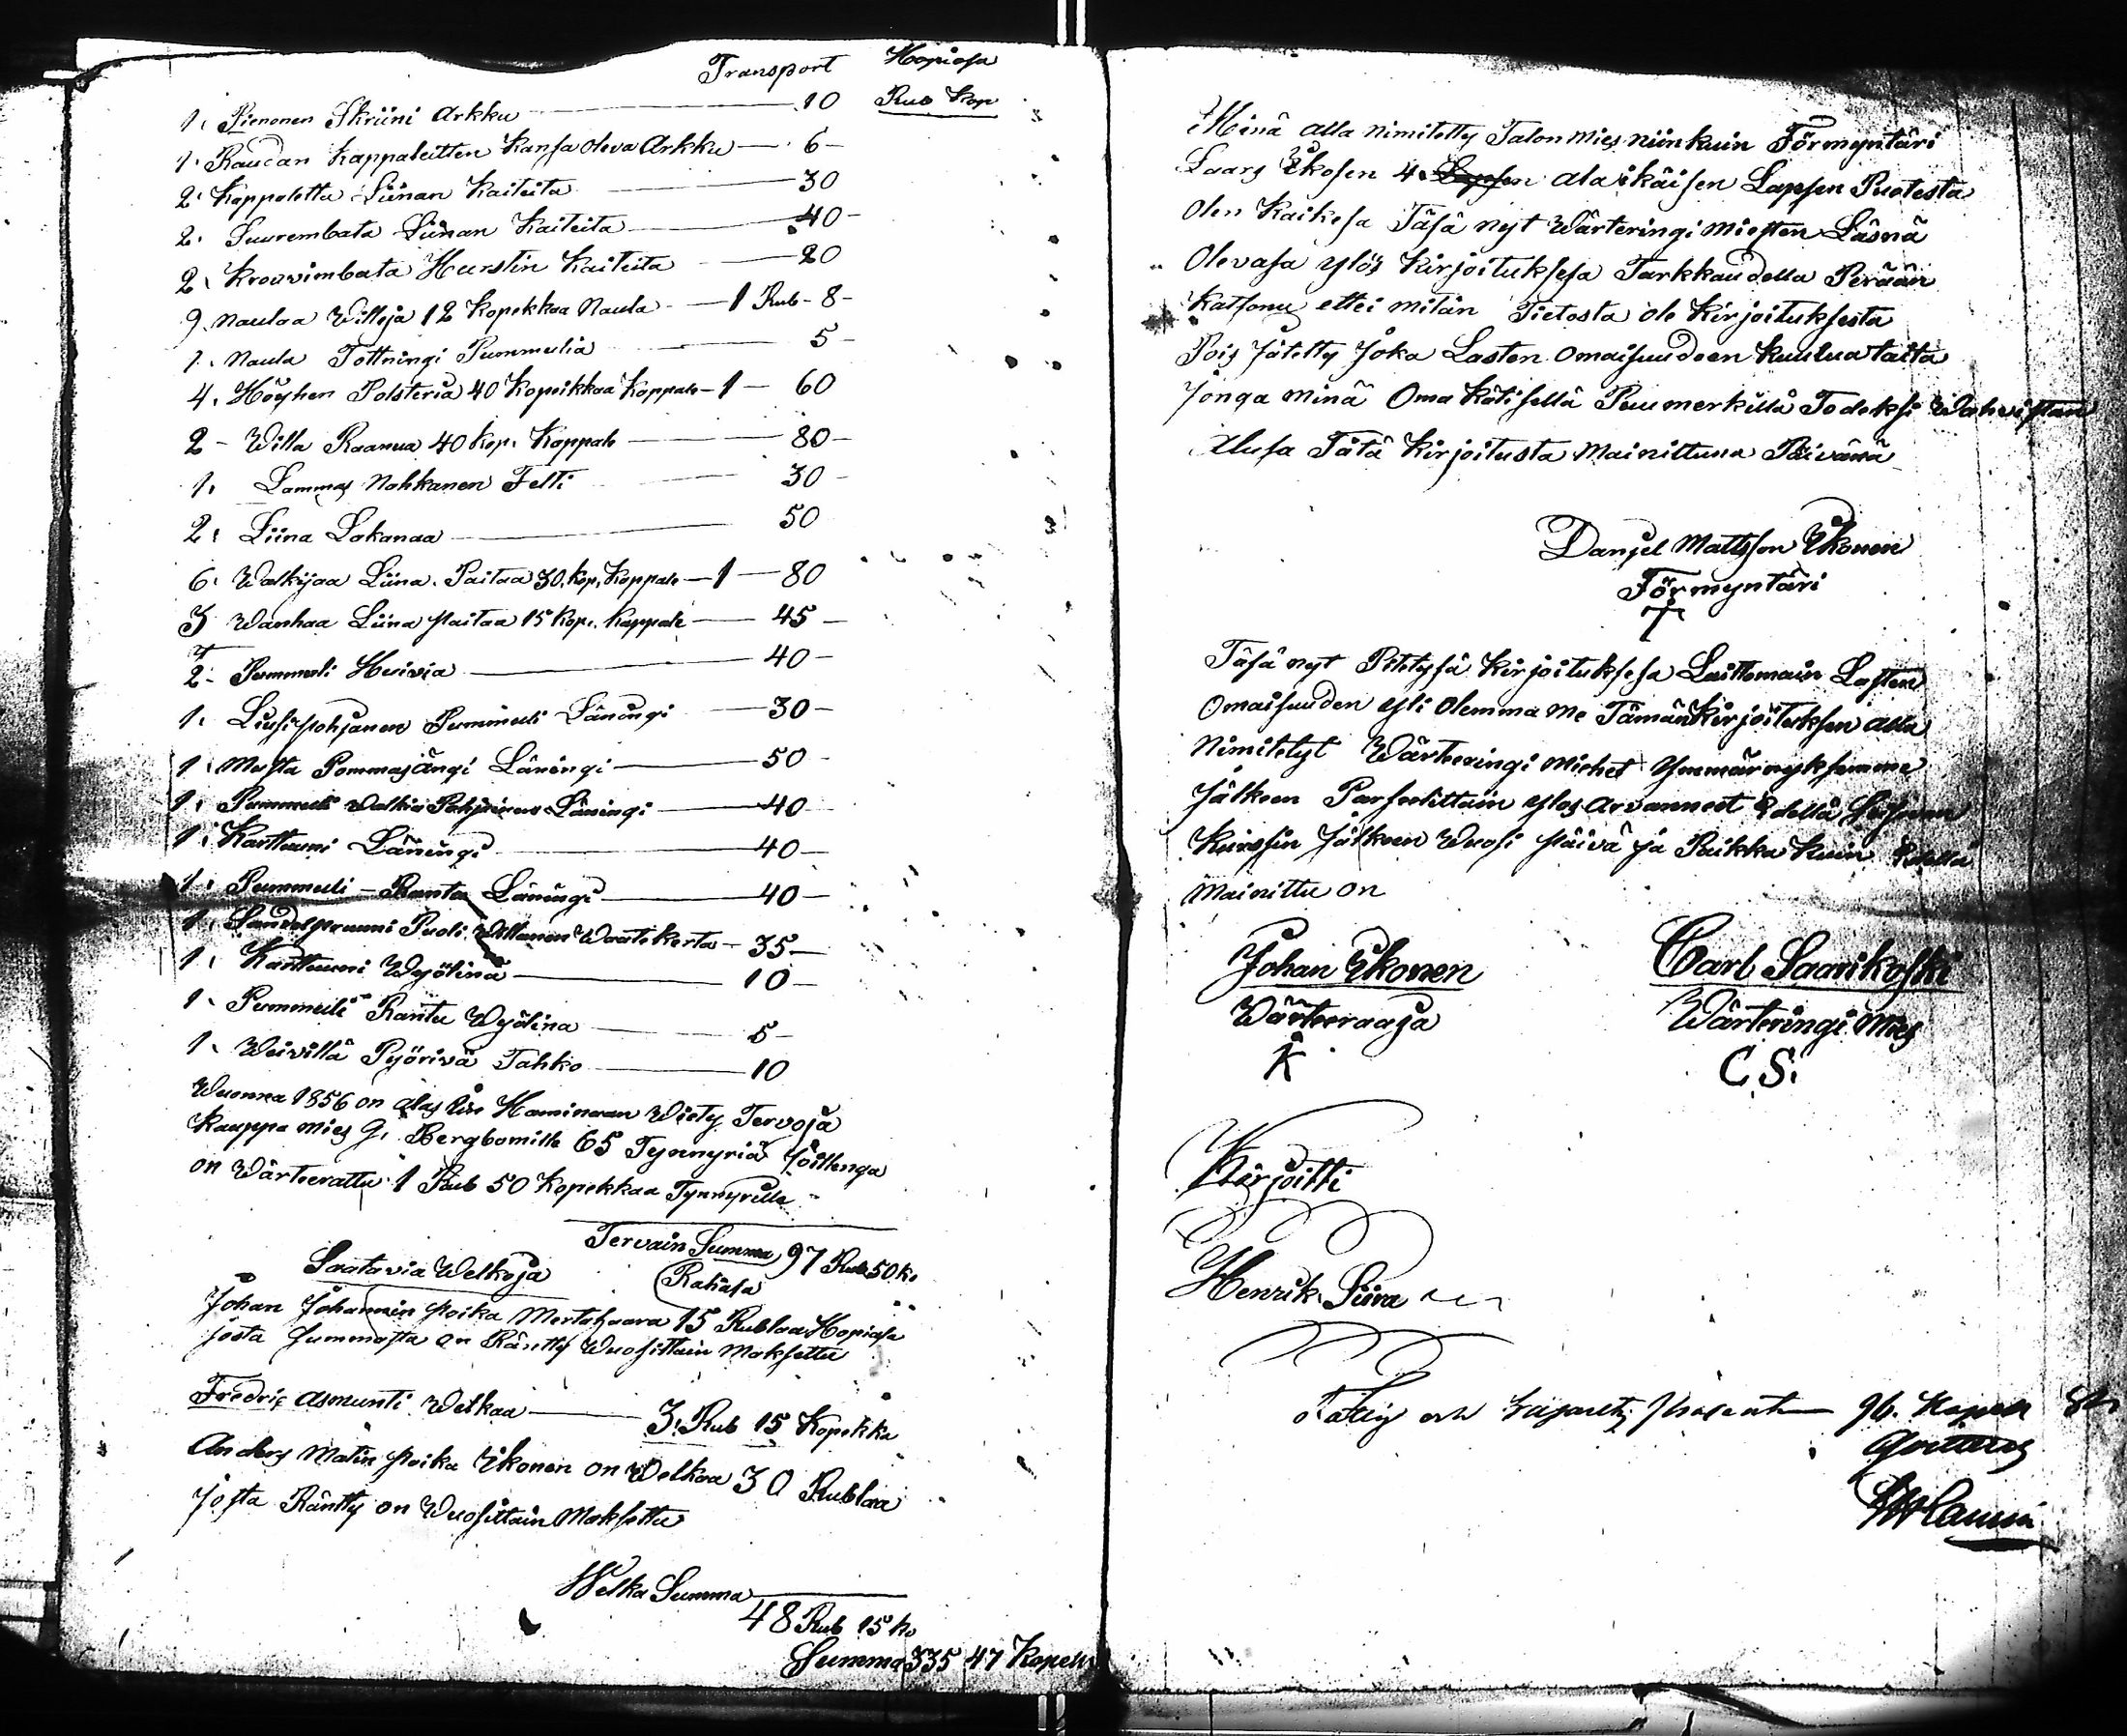 Transport Hopiasa
Rub Kop
1. Pienonen Skriini Arkku 10
1. Raudan Kappaleitten Kansa oleva Arkku 6
2. Kappaletta Liinan Kaiteita 30
2. Suurembata Liinan Kaiteita 40
2. Krouvimbata Hurstin Kaiteita 20
9. Naulaa Willoja 12 Kopekkaa Naula 1 Rub 8
1. Naula Tottningi Pummulia 5
4. Höyhen Polsteria 40 Kopeikkaa Kappale 1 60
2 Willa Raanua 40 kop. Kappale 80
1. Lammas Nahkanen Felti 30
2. Liina Lakanaa 50
6. Walkijaa Liina Paitaa 30. kop. Kappale 1 80
3 Wanhaa Liina paitaa 15 kop. kappale 45
2. Pummuli Huivia 40
1. Liusipohjanen Pummuli Länängi 30
1. Musta Pommasängi Läningi 50
1. Pummuli Walkia Pohjainen Läningi 40
1. Karttuuni Läningi 40
1. Pummuli Ranta Läningi 40
1. Puoli Willanen Waatekerta 35
1. Karttuuni Wyölinä 10
1. Pummuli Rantu Wyölina 5
1. Weivillä Pyörivä Tahko 10
Wuonna 1856 on alas Haminaan Wiety Tervoja
Kauppa mies G. Bergbomille 65 Tynnyriä Joillenga
on Wärteerattu 1 Rub 50 Kopekkaa Tynnyrille
Tervain Summa 97 Rub 50 ko
Saatavia Welkoja Rahasa
Johan Johannin poika Mertahaara 15 Rublaa Hopiasa
josta summasta on Räntty Wuosittain Maksettu
Fredrig Asmunti Welkaa 3. Rub 15 Kopekka
Anders Matin poika Ikonen on Welkaa 30 Rublaa
Josta Räntty on Wuosittain Maksettu
Welka Summa
48 Rub 15 ko
Summa 335 47 Kopek
Minä alla nimitetty Talon Mies niinkuin Förmyntäri
Laars Ikosen 4 Lapsen ala ikäisen Lapsen Puolesta
Olen Kaikesa Täsä nyt Wärteringi miesten Läsnä
Olevasa ylös Kirjoituksesa Tarkkaudella Perään
Katsonu ettei mitän Tietosta ole Kirjoituksesta
Pois Jätetty Joka Lasten Omaisuudeen Kuulua taita
Jonga minä Oma Kätisellä Puumerkillä Todeksi Wahvistan
Alusa Tätä Kirjoitusta Mainittuna Päivänä
Danjel Mattsson Ikonen
Förmyntäri
Täsä nyt Pitetysä Kirjoituksesa Laittomain Lasten
Omaisuuden yli Olemma me Tämän Kirjoituksen alla
Nimitetyt Wärteeringi Miehet Ymmärryksemme
Jälkeen Parseelittain ylos Arvanneet Edellä
Kurssin Jälkeen Wuosi päivä ja Paikka Kuin Edellä
Mainittu on
Johan Ikonen Carl Saarikoski
Wärteeraaja Wärteringi Mies
K C S.
Kirjoitti
Henrik Siira
Fattig och 96. Kopek